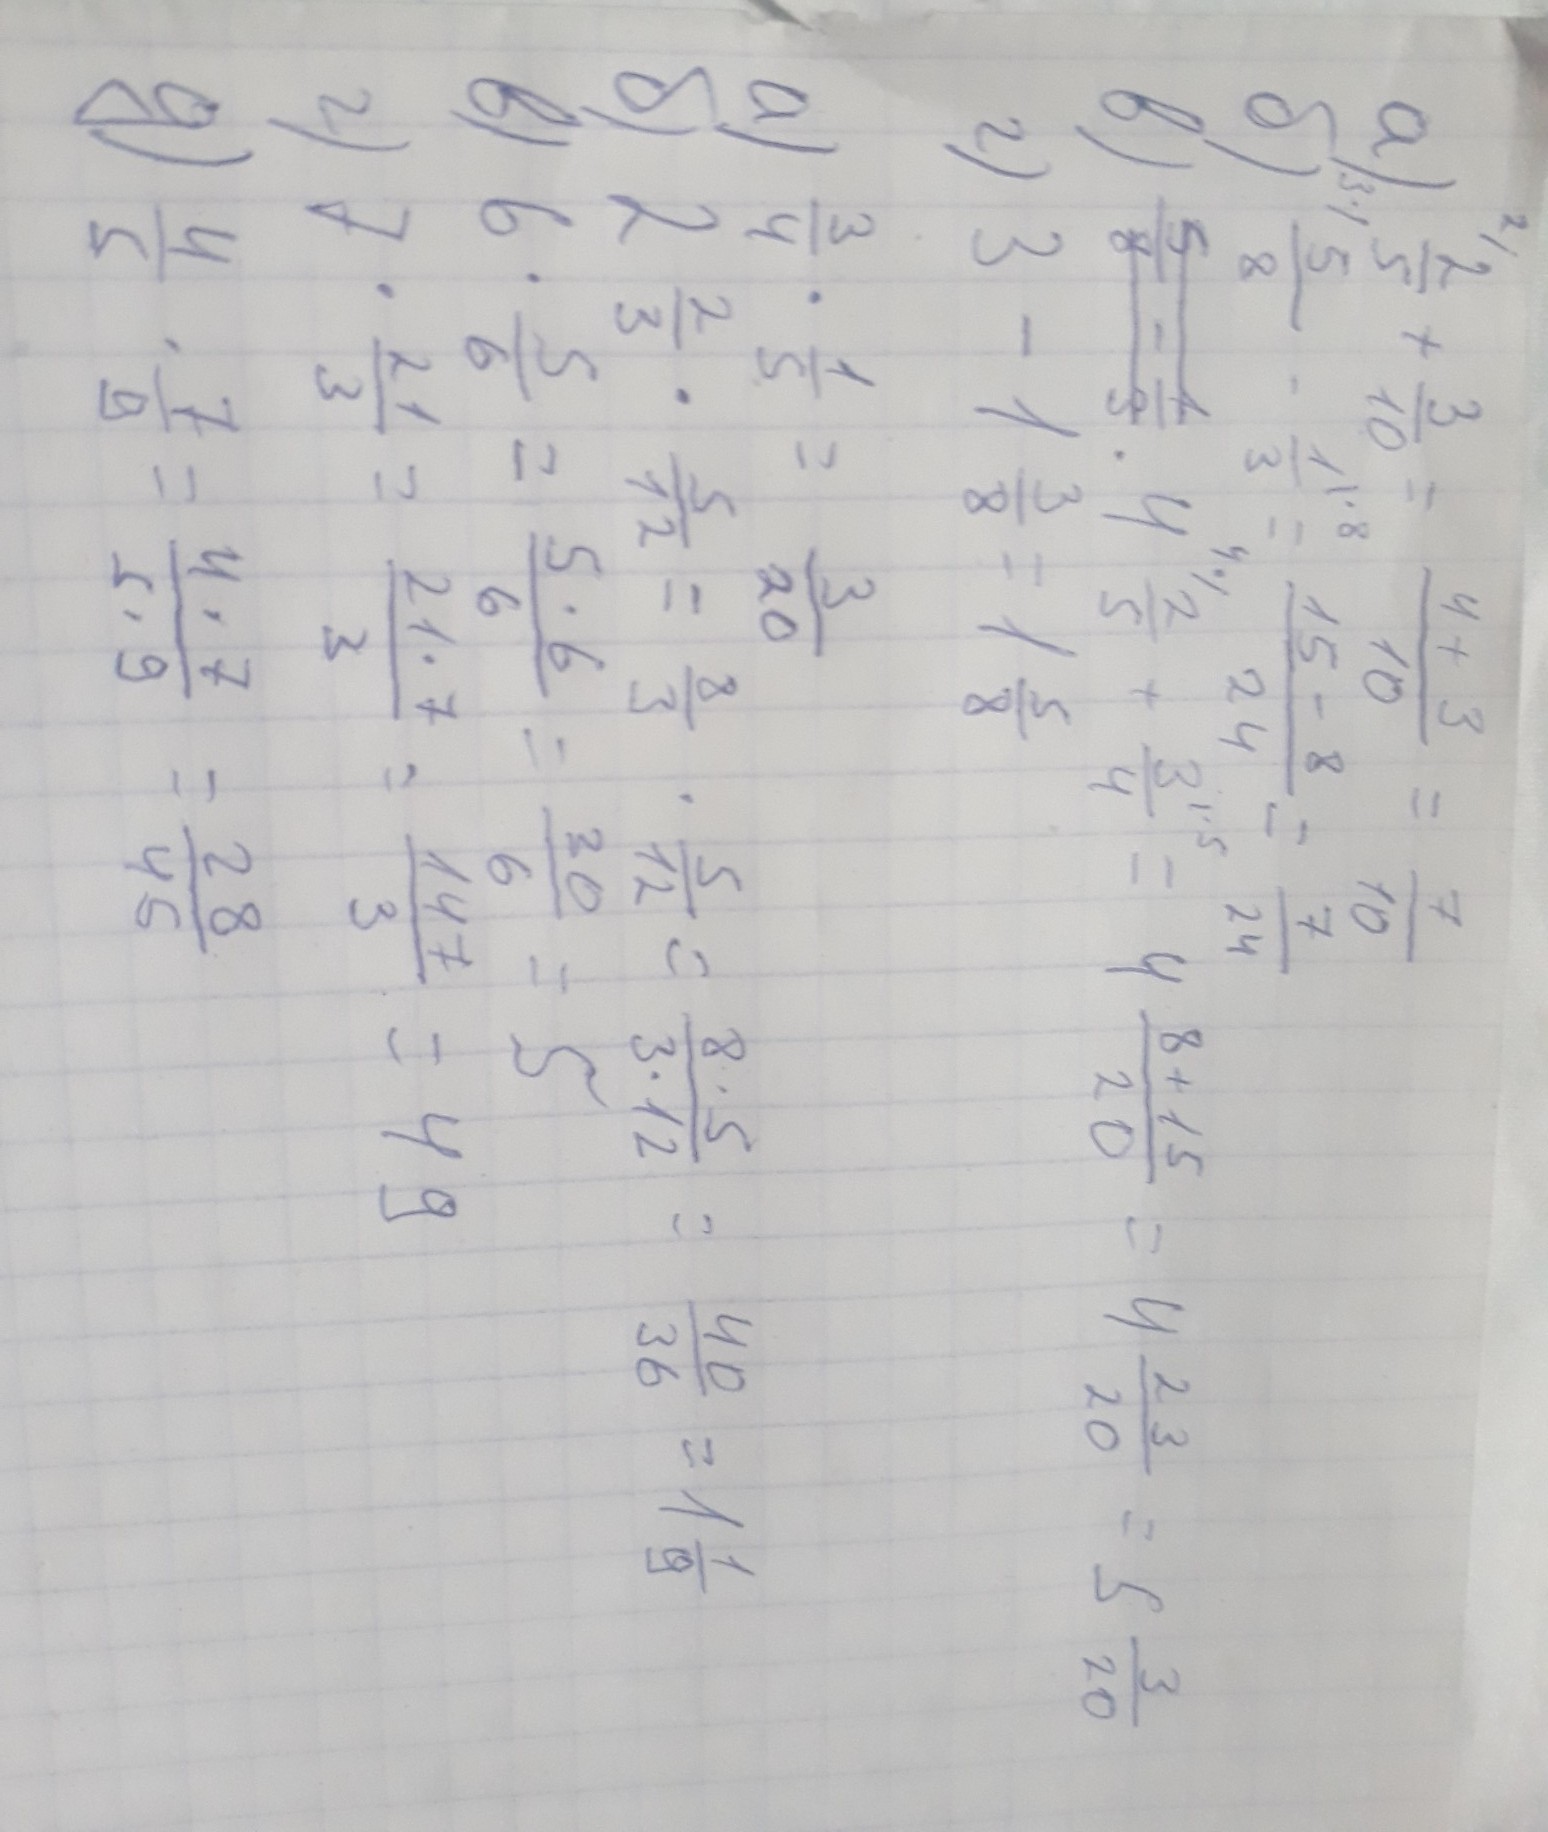 а) ²⁄ 2/5 + 3/10 = (4+3)/10 = 7/10
б) ³·⁄ 5/8 - 1/3 ⁄·⁸ = (15-8)/24 = 7/24
в) 4 ⁴·⁄ 2/5 + 3/4 ⁄·⁵ = 4 (8+15)/20 = 4 23/20 = 5 3/20
г) 3 - 1 3/8 = 1 5/8
а) 3/4 · 1/5 = 3/20
б) 2 2/3 · 5/12 = 8/3 · 5/12 = (8·5)/(3·12) = 40/36 = 1 1/9
в) 6 · 5/6 = (5·6)/6 = 30/6 = 5
г) 7 · 21/3 = (21·7)/3 = 147/3 = 49
д) 4/5 · 7/9 = (4·7)/(5·9) = 28/45